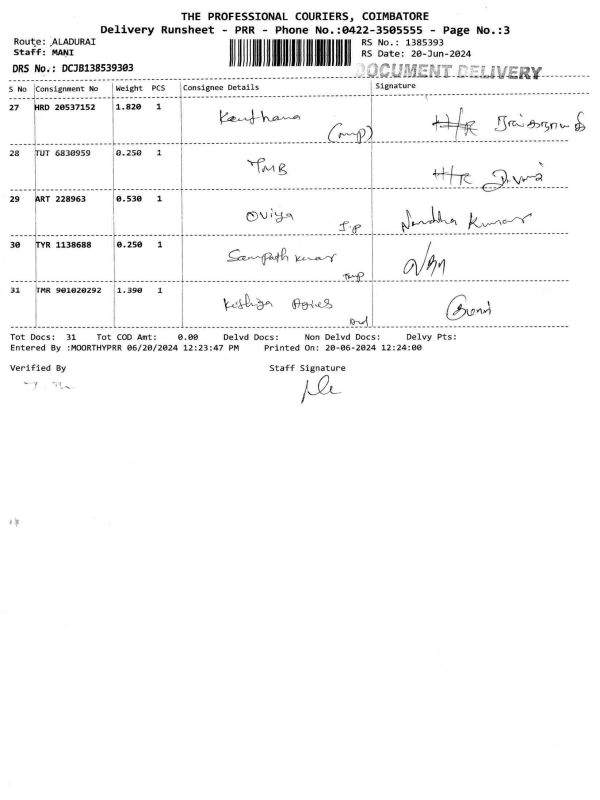 THE PROFESSIONAL COURIERS, COIMBATORE
Delivery Runsheet - PRR - Phone No.:0422-3505555 - Page No.:3
Route: ALADURAI
RS No.: 1385393
Staff: MANI
RS Date: 20-Jun-2024
DRS No.: DCJB138539303
DOCUMENT DELIVERY
S No Consignment No Weight PCS Consignee Details Signature
27 HRD 20537152 1.820 1
28 TUT 6830959 0.250 1 TMB
29 ART 228963 0.530 1 Oviya
30 TYR 1138688 0.250 1 Sampath kumar
31 TMR 901020292 1.390 1
Tot Docs: 31 Tot COD Amt: 0.00 Delvd Docs: Non Delvd Docs: Delvy Pts:
Entered By :MOORTHYPRR 06/20/2024 12:23:47 PM Printed On: 20-06-2024 12:24:00
Verified By Staff Signature